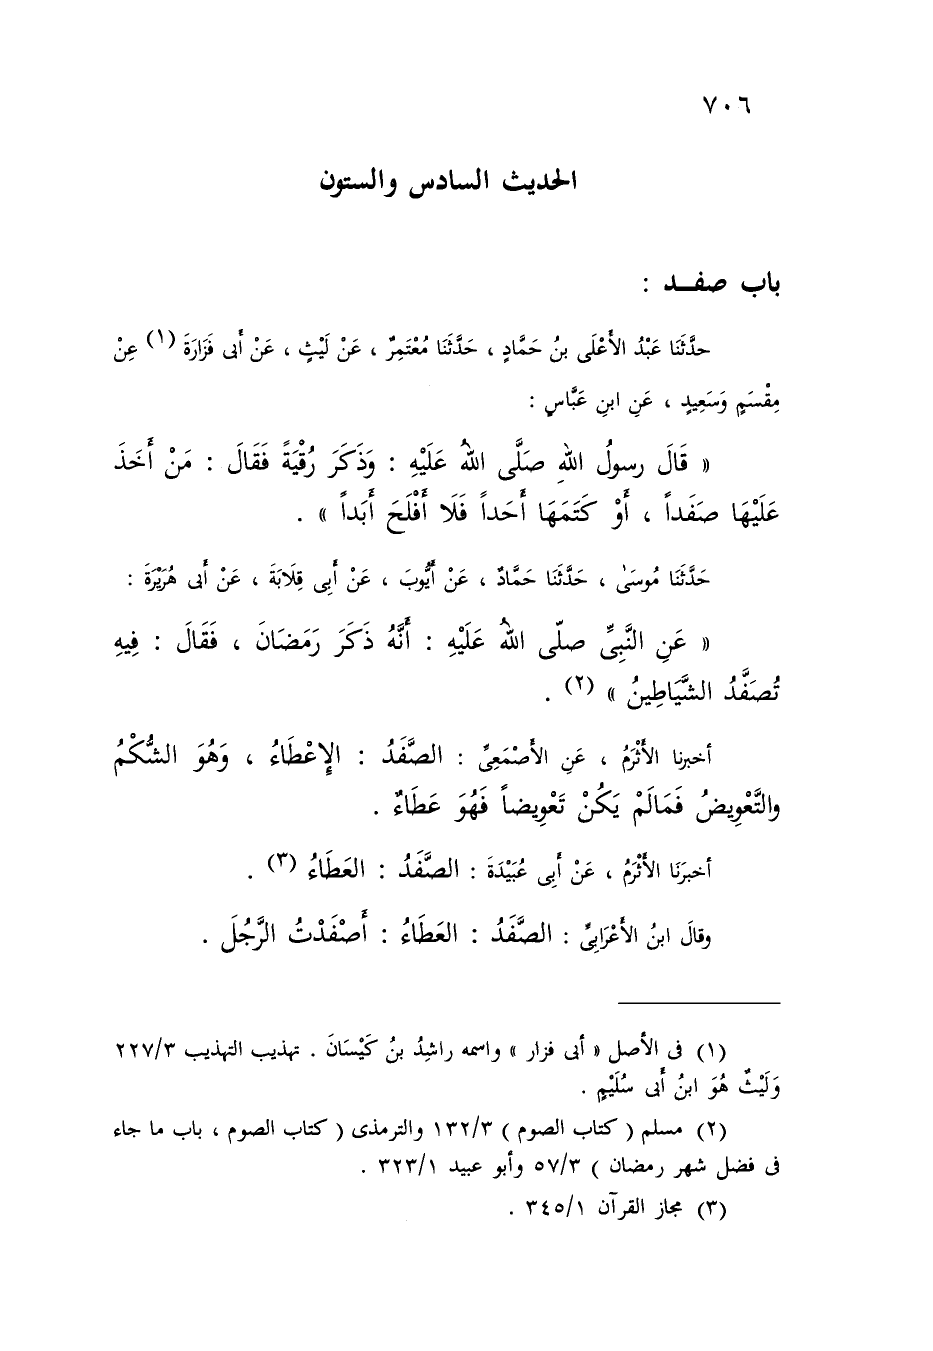 ٧٠٦
الحديث السادس والستون
باب صفــد :
حدَّثَنَا عَبْدُ الأَعْلَى بنُ حَمَّادٍ ، حَدَّثَنَا مُعْتَمِرٌ ، عَنْ لَيْثٍ ، عَنْ أَبى فَزَارَةَ (١) عِنْ
مِقْسَمٍ وَسَعِيدٍ ، عَنِ ابنِ عَبَّاسٍ :
« قَالَ رسولُ اللهِ صَلَّى اللهُ عَلَيْهِ : وَذَكَرَ رُقْيَةً فَقَالَ : مَنْ أَخَذَ
عَلَيْهَا صَفَداً ، أَوْ كَتَمَهَا أَحَداً فَلَا أَفْلَحَ أَبَداً » .
حَدَّثَنَا مُوسَىٰ ، حَدَّثَنَا حَمَّادٌ ، عَنْ أَيُّوبَ ، عَنْ أَبِى قِلَابَةَ ، عَنْ أَبى هُرَيْرَةَ :
« عَنِ النَّبِىِّ صلّى اللهُ عَلَيْهِ : أَنَّهُ ذَكَرَ رَمَضَانَ ، فَقَالَ : فِيهِ
تُصَفَّدُ الشَّيَاطِينُ » (٢) .
أخبرنا الأَثْرَمُ ، عَنِ الأَصْمَعِىِّ : الصَّفَدُ : الإِعْطَاءُ ، وَهُوَ الشُّكْمُ
والتَّعْوِيضُ فَمَالَمْ يَكُنْ تَعْوِيضاً فَهُوَ عَطَاءٌ .
أخبرَنَا الأَثْرَمُ ، عَنْ أَبِى عُبَيْدَةَ : الصَّفَدُ : العَطَاءُ (٣) .
وقالَ ابنُ الأَعْرَابِىِّ : الصَّفَدُ : العَطَاءُ : أَصْفَدْتُ الرَّجُلَ .
(١) فى الأصل « أبى فزار » واسمه راشِدُ بنُ كَيْسَانَ . تهذيب التهذيب ٢٢٧/٣
وَلَيْثٌ هُوَ ابنُ أَبى سُلَيْمٍ .
(٢) مسلم ( كتاب الصوم ) ١٣٢/٣ والترمذى ( كتاب الصوم ، باب ما جاء
فى فضل شهر رمضان ) ٥٧/٣ وأبو عبيد ٣٢٣/١ .
(٣) مجاز القرآن ٣٤٥/١ .